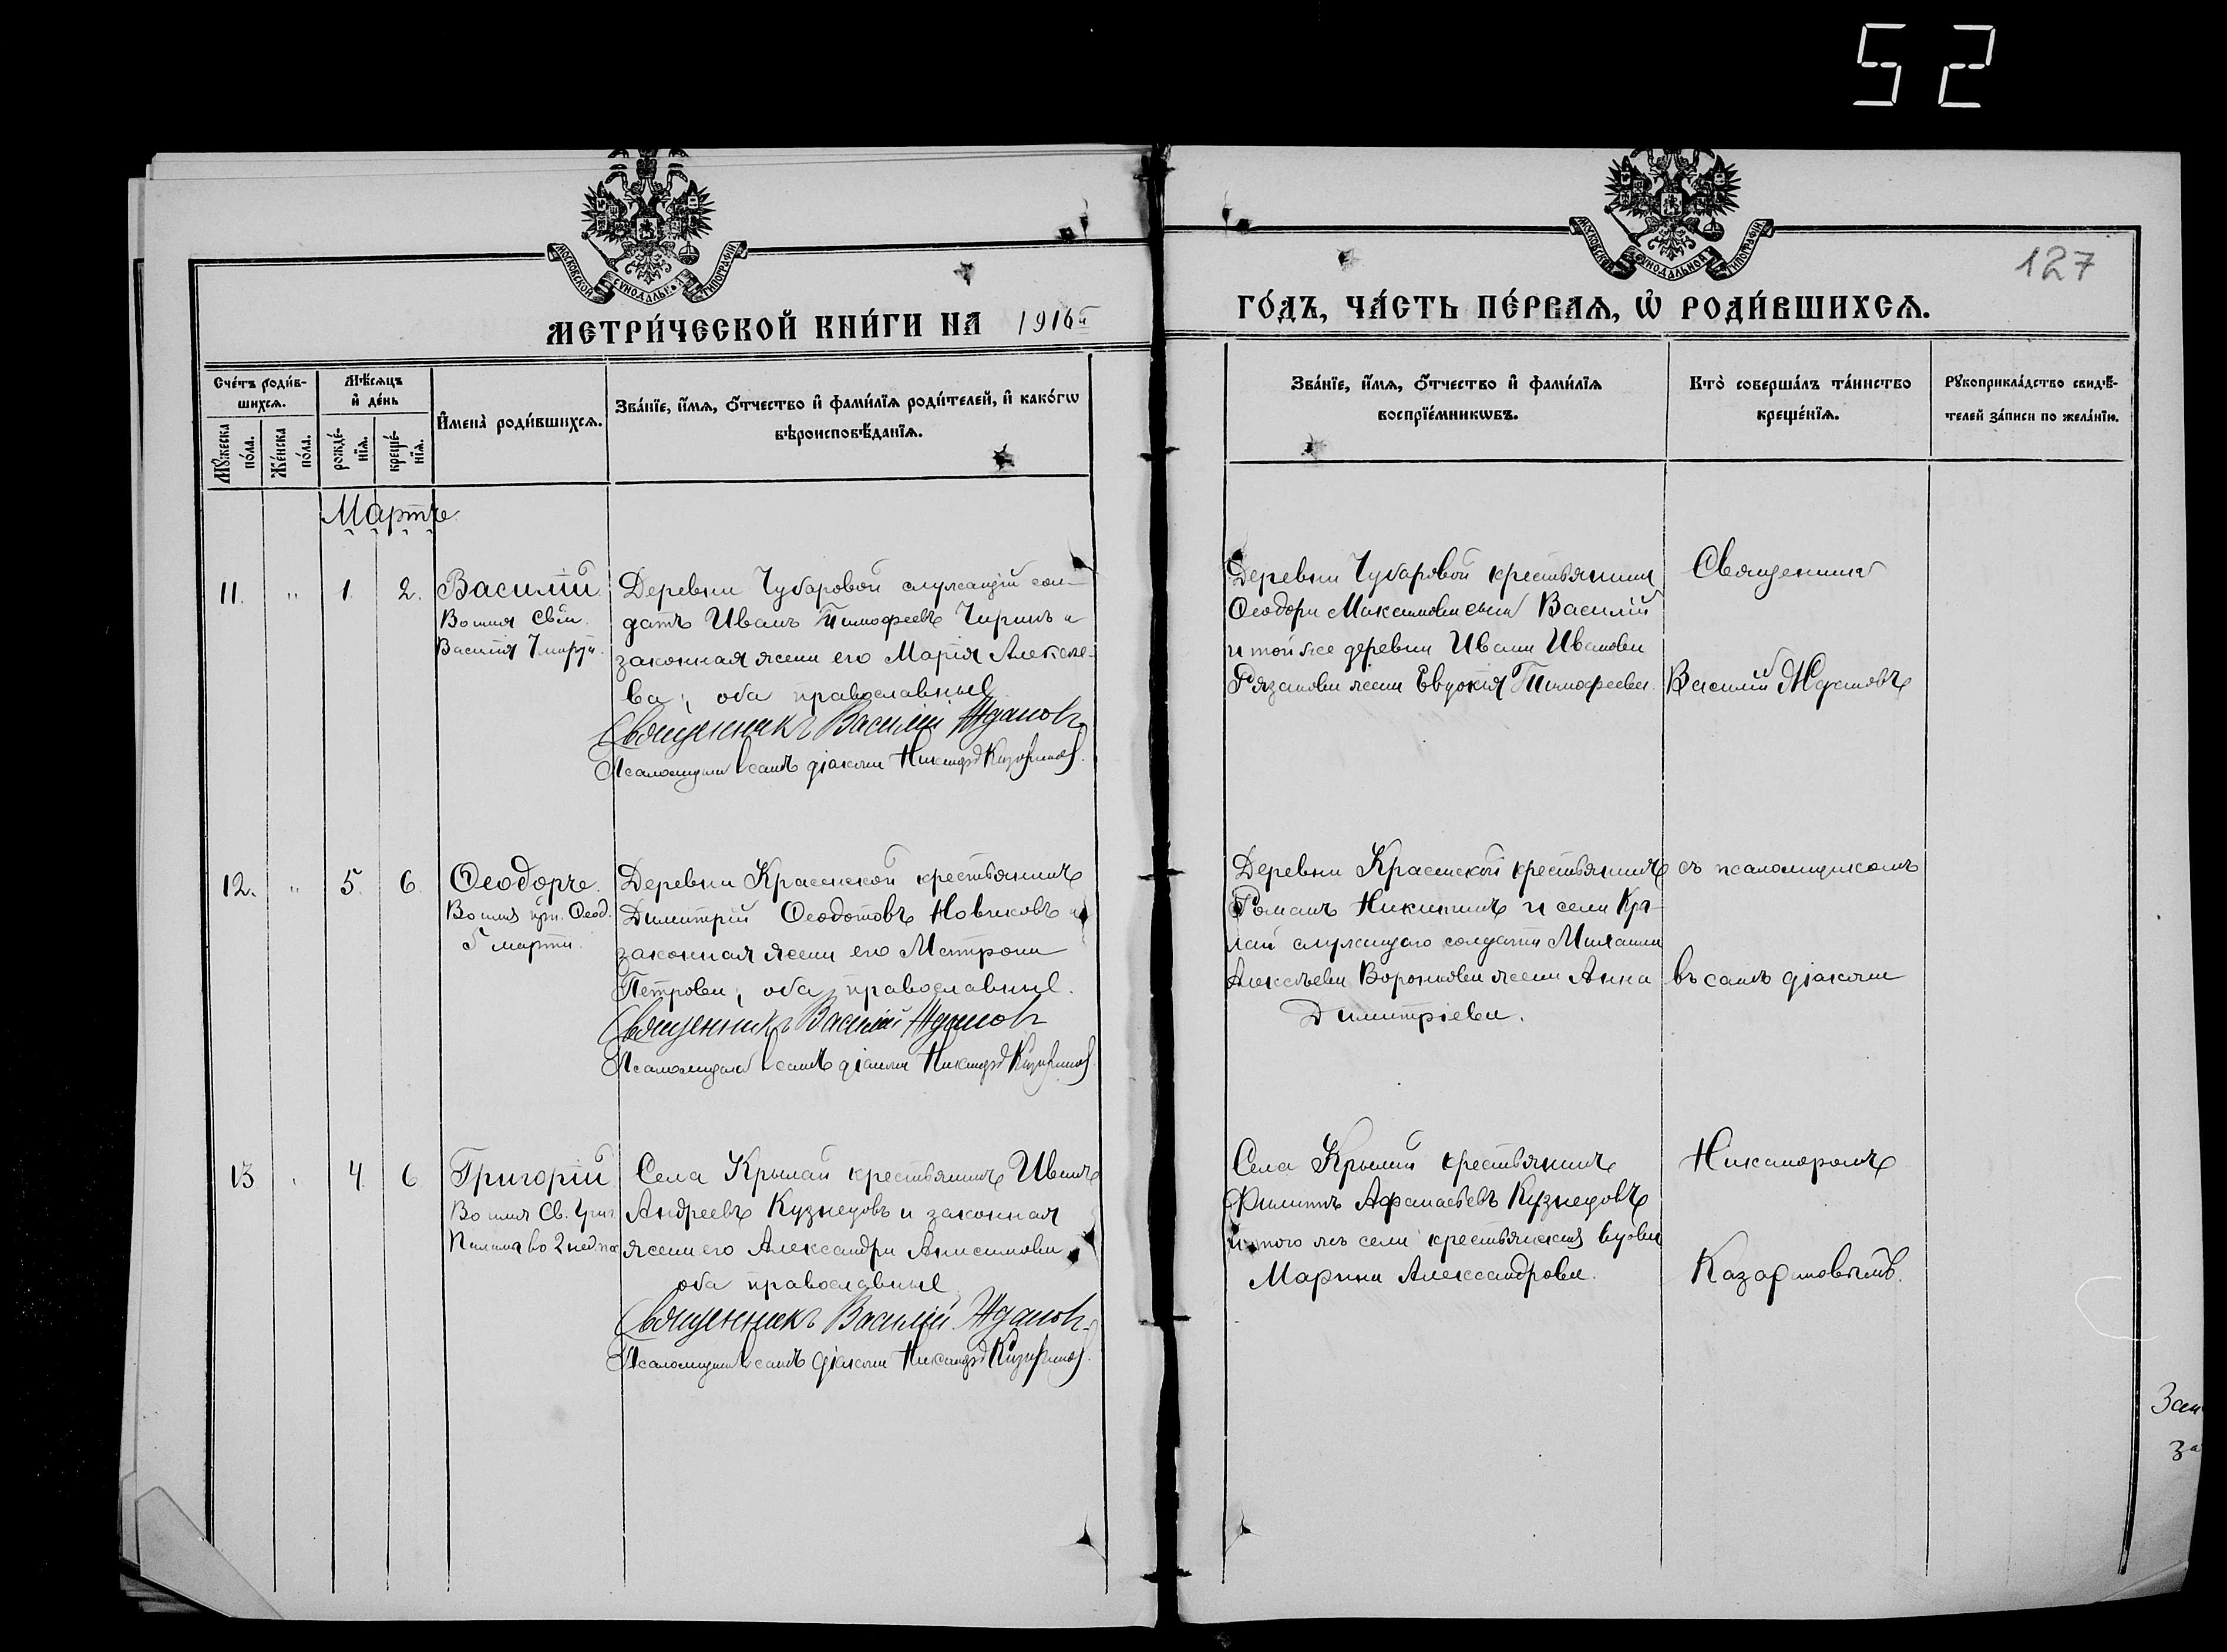 52
МОСКОВСКОЙ СУНОДАЛЬНОЙ ТИПОГРАФІИ
МОСКОВСКОЙ СУНОДАЛЬНОЙ ТИПОГРАФІИ
127
МЕТРИ́ЧЕСКОЙ КНИ́ГИ НА 1916й
ГО́ДЪ, ЧА́СТЬ ПЕ́РВАѦ, Ѡ҆ РОДИ́ВШИХСѦ.
Сче́тъ роди́в-
шихсѧ.
Мѣ́сѧцъ
и҆ де́нь
И҆мена̀ роди́вшихсѧ.
Зва́нїе, и҆́мѧ, ѻ҆́тчество и҆ фами́лїѧ роди́телей, и҆ како́гѡ
вѣроисповѣ́данїѧ.
Мꙋ́жеска
по́ла.
Же́нска
по́ла.
рожде́-
нїѧ.
креще́-
нїѧ.
Зва́нїе, и҆́мѧ, ѻ҆́тчество и҆ фами́лїѧ
воспрїе́мникѡвъ.
Кто̀ соверша́лъ та́инство
креще́нїѧ.
Рꙋкоприкла́дство свидѣ́-
телей за́писи по жела́нїю.
Мартъ
11. " 1. 2. Василій
Во имя свм.
Василія 7 марта.
Деревни Чубаровой служащій сол-
датъ Иванъ Тимофеевъ Чиринъ и
законная жена его Марія Алексее-
ва; оба православные
Священникъ Василій Ждановъ
Псаломщикъ в санѣ діакона Никаноръ
Деревни Чубаровой крестьянина
Ѳеодора Максимова сынъ Василій
и той же деревни Ивана Иванова
Рязанова жена Евдокія Тимофеева.
Священникъ
Василій Ждановъ
12. " 5. 6. Ѳеодоръ.
Во имя Ѳеод.
5 марта.
Деревни Красинской крестьянинъ
Димитрій Ѳеодотовъ Новиковъ и
законная жена его Матрона
Петрова; оба православные.
Священникъ Василій Ждановъ
Псаломщикъ в санѣ діакона Никаноръ
Деревни Красинской крестьянинъ
Романъ Никитинъ и села Кры-
лай служащаго солдата Михаила
Алексѣева Воронкова жена Анна
Димитріева.
съ псаломщикомъ
въ санѣ діакона
13 4. 6 Григорій
Во имя Св. Григ.
Паламы во 2 нед.
Села Крылай крестьянинъ Иванъ
Андреевъ Кузнецовъ и законная
жена его Александра Анисимова,
оба православные
Священникъ Василій Ждановъ.
Псаломщикъ в санѣ діакона Никаноръ
Села Крылай крестьянинъ
Филиппъ Афанасьевъ Кузнецовъ
и того жъ села крестьянская вдова
Марина Александрова.
Никаноромъ
Казариновымъ.